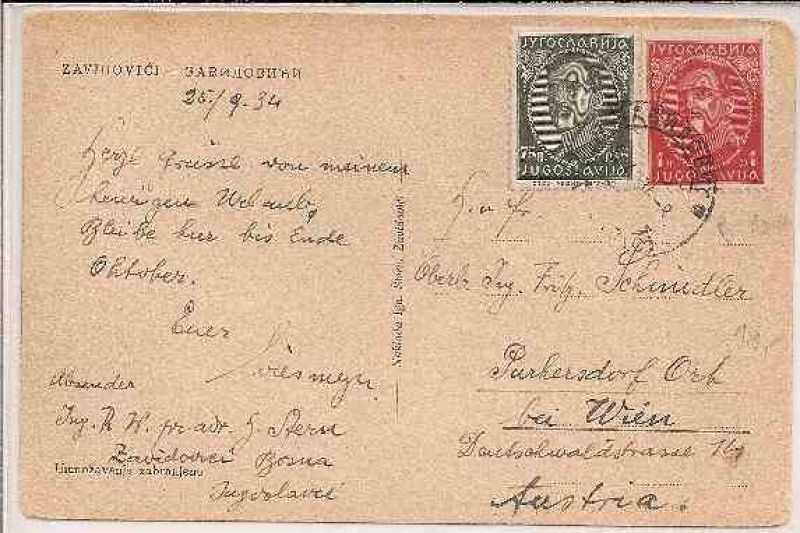 ZAVIDOVIĆI - ЗАВИДОВИЋИ
25/9.34
Herzl Grüsse von meinem
heurigen Urlaub,
Bleibe hier bis Ende
Oktober.
Euer
Absender
Ing. R. W. pr. adr. J. Stern
Zavidovići Bosna
Jugoslavië
Umnožavanje zabranjeno
Naklada Ign. Stern, Zavidovići
ЈУГОСЛАВИЈА
JUGOSLAVIJA
ЈУГОСЛАВИЈА
1 1
JUGOSLAVIJA
Oberbr Ing. Fritz Schindler
Purkersdorf Ort
bei Wien
Deutschwaldstrasse
Austria.